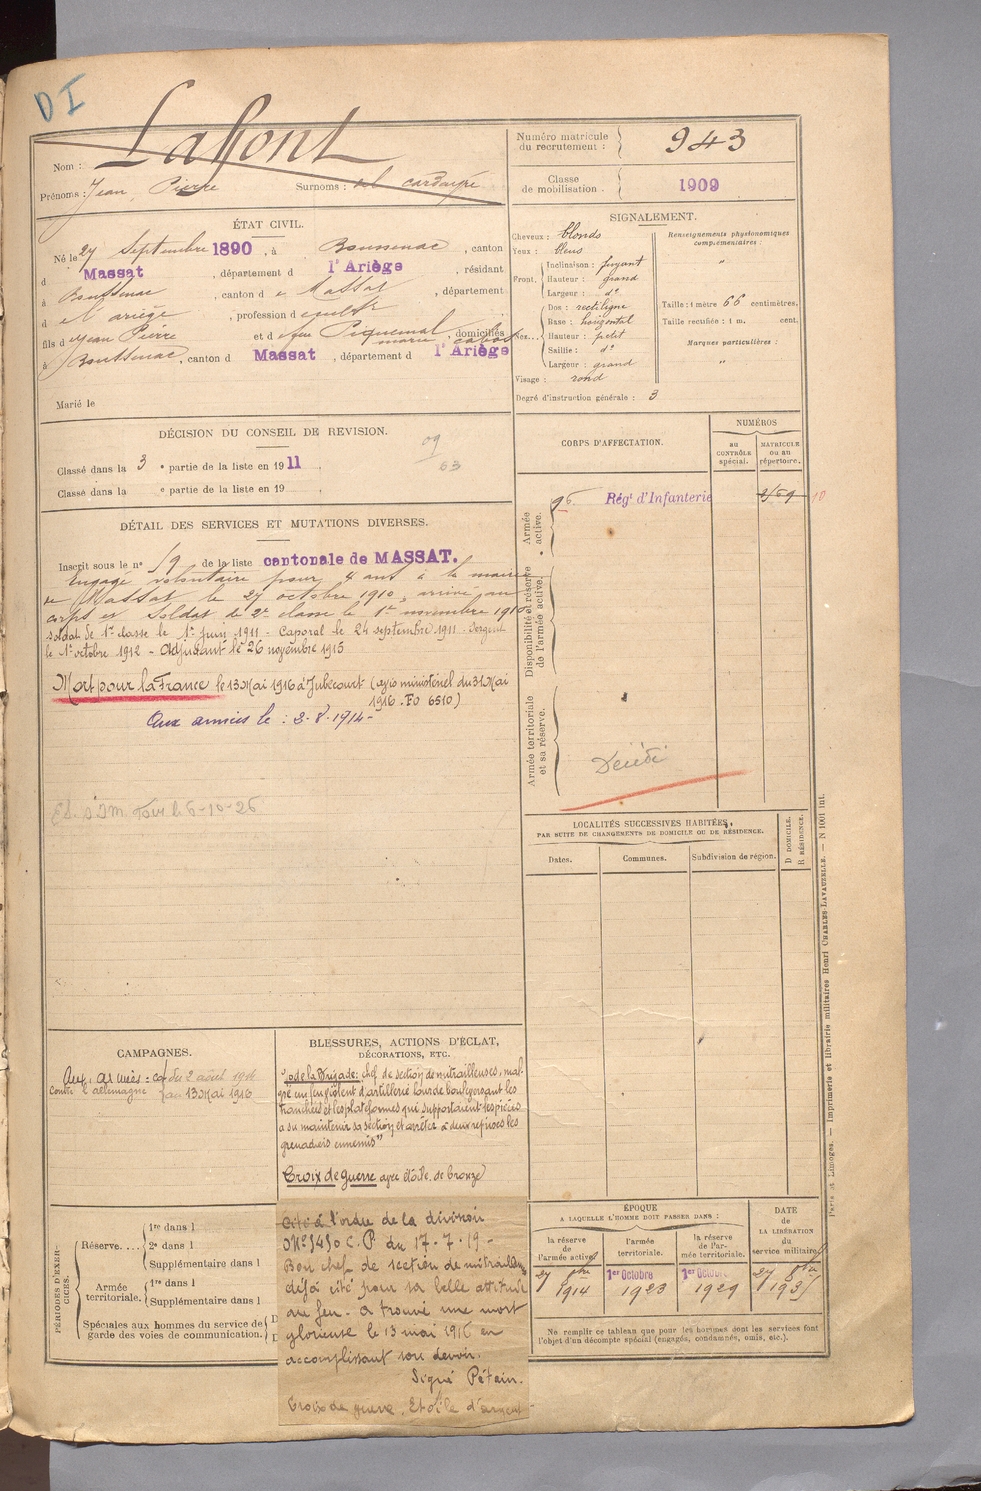 DI
Nom : Lafont
Prénoms : Jean Pierre Surnoms :
Numéro matricule du recrutement : 943
Classe de mobilisation. 1909
ÉTAT CIVIL.
Né le 27 Septembre 1890, à Boussenac, canton
d Massat, département d l'Ariège, résidant
à Boussenac, canton d e Massat, département
d e l'ariège, profession d
fils d e Jean Pierre et d e feu Pequemal marie, domiciliés
à Boussenac, canton d Massat, département d l'Ariège
Marié le
SIGNALEMENT.
Cheveux : blonds
Yeux : bleus
Front. Inclinaison : fuyant
Hauteur : grand
Largeur : d°
Nez... Dos : rectiligne
Base : horizontal
Hauteur : petit
Saillie : d°
Largeur : grand
Visage : rond
Degré d'instruction générale : 3
Renseignements physionomiques complémentaires :
"
Taille : 1 mètre 66 centimètres.
Taille rectifiée : 1 m. cent.
Marques particulières :
"
DÉCISION DU CONSEIL DE REVISION.
Classé dans la 3 e partie de la liste en 1911,
Classé dans la e partie de la liste en 19 ,
09
63
DÉTAIL DES SERVICES ET MUTATIONS DIVERSES.
Inscrit sous le n° 19 de la liste cantonale de MASSAT.
Engagé volontaire pour 4 ans à la mairie
de Massat le 27 octobre 1910, arrivé au
corps et soldat de 2e classe le 1er novembre 1910
soldat de 1e classe le 1er juin 1911 - Caporal le 24 septembre 1911 - Sergent
le 1er octobre 1912 - Adjudant le 26 novembre 1915
Mort pour la France le 13 Mai 1916 à Jubécourt (avis ministériel du 31 Mai
1916. FO 6510)
Aux armées le : 2.8.1914-
6-10-26
CORPS D'AFFECTATION.
NUMÉROS
au CONTRÔLE spécial.
MATRICULE ou au répertoire.
Armée active.
Régt d'Infanterie
Disponibilité et réserve de l'armée active.
Armée territoriale et sa réserve.
Décédé
LOCALITÉS SUCCESSIVES HABITÉES,
PAR SUITE DE CHANGEMENTS DE DOMICILE OU DE RÉSIDENCE.
Dates.
Communes.
Subdivision de région.
D DOMICILE.
R RÉSIDENCE.
CAMPAGNES.
Aux armées :
Contre l'allemagne
du 2 août 1914
au 13 Mai 1916
BLESSURES, ACTIONS D'ÉCLAT,
DÉCORATIONS, ETC.
o de la Brigade : chef de section de mitrailleuses, mal-
gré un feu violent d'artillerie lourde bouleversant les
tranchées et les plateformes qui supportaient ses pièces
a su maintenir sa section et arrêter à deux reprises les
grenadiers ennemis"
Croix de guerre avec étoile de bronze
Cité à l'ordre de la division
du 17.7.19-
Bon chef de section de mitrailleuses
déjà cité pour sa belle attitude
au feu. a trouvé une mort
glorieuse le 13 mai 1916 en
accomplissant son devoir.
Signé Pétain.
Croix de guerre. Etoile d'argent
PÉRIODES D'EXERCICES.
Réserve....
1re dans l
2e dans l
Supplémentaire dans l
Armée territoriale.
1re dans l
Supplémentaire dans l
Spéciales aux hommes du service de garde des voies de communication.
ÉPOQUE
A LAQUELLE L'HOMME DOIT PASSER DANS :
la réserve de l'armée active.
l'armée territoriale.
la réserve de l'armée territoriale.
DATE de LA LIBÉRATION du service militaire
27 8bre 1914
1er Octobre 1923
1er Octobre 1929
27 8bre
Ne remplir ce tableau que pour les hommes dont les services font
l'objet d'un décompte spécial (engagés, condamnés, omis, etc.).
Paris et Limoges. — Imprimerie et librairie militaires Henri CHARLES-LAVAUZELLE. — N 1001 int.